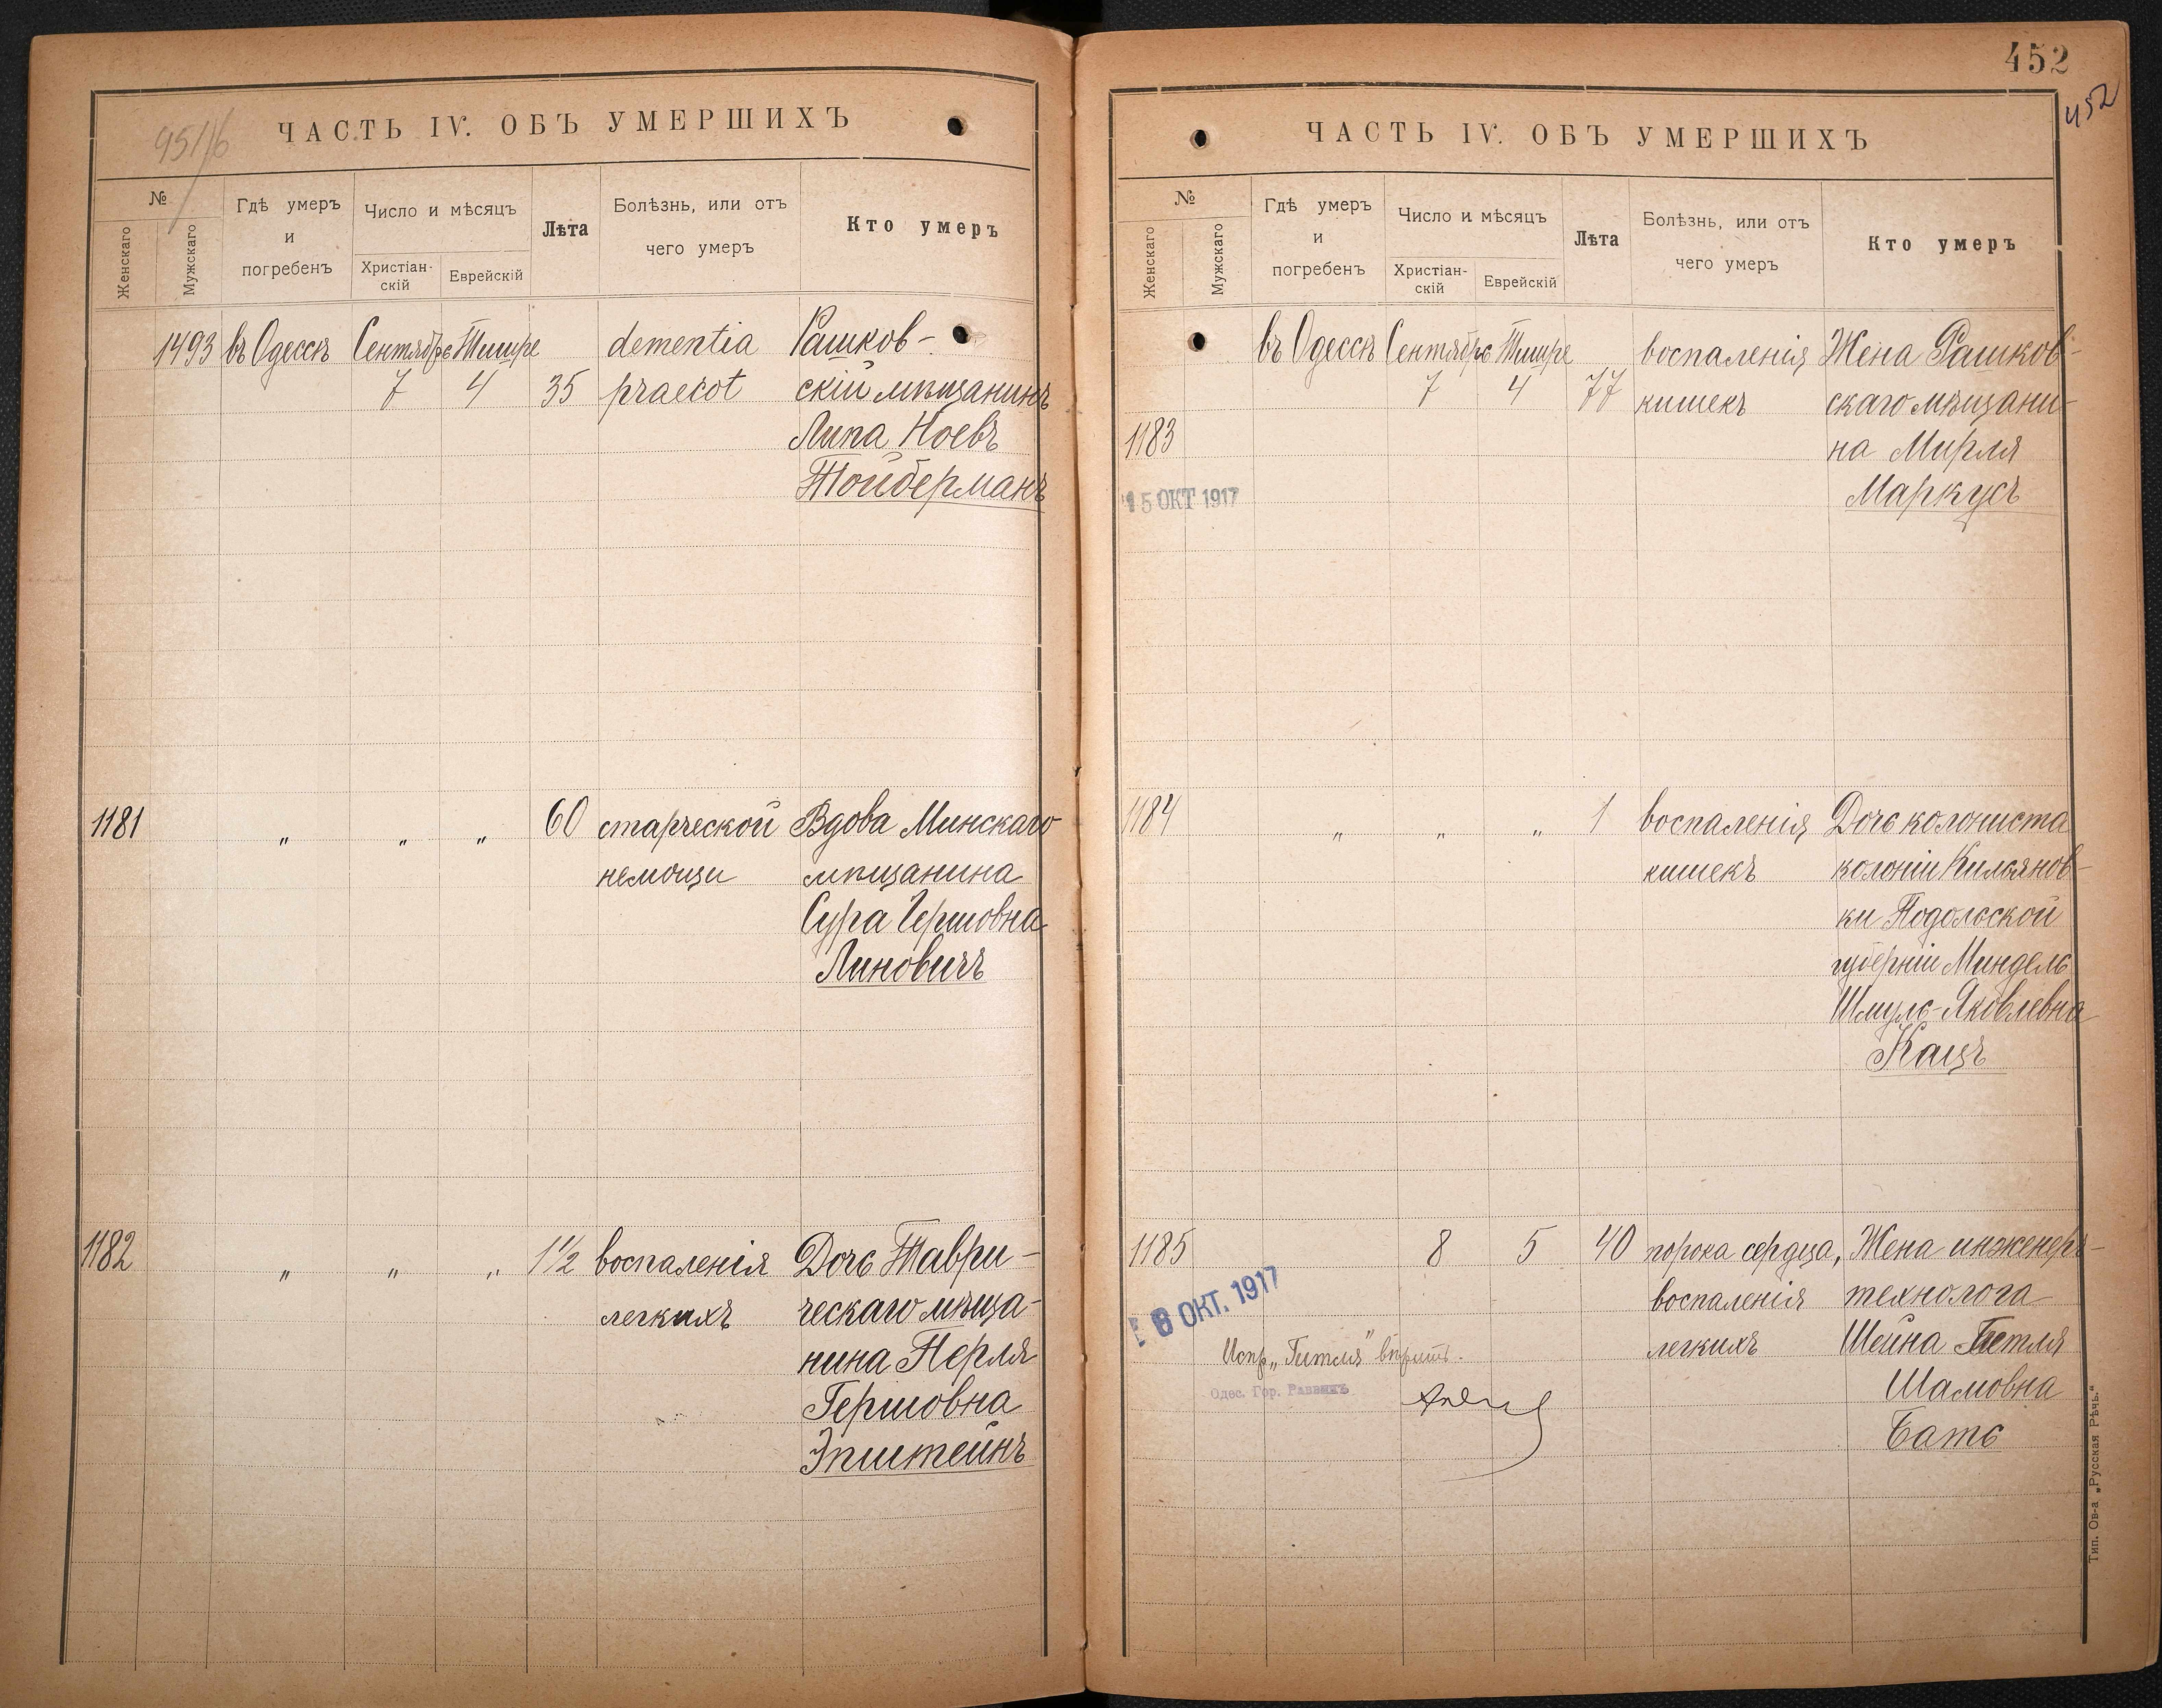 951/б
ЧАСТЬ IV. ОБЪ УМЕРШИХЪ
№
Женскаго
Мужскаго
Гдѣ умеръ
и
погребенъ
Число и мѣсяцъ
Христіан-
скій
Еврейскій
Лѣта
Болѣзнь, или отъ
чего умеръ
Кто умеръ
1493 въ Одессѣ Сентябрь Тишре dementia Рашков-
7 4 35 praecot скій мѣщанинъ
Липа Ноевъ
Тойберманъ
1181 „ „ „ 60 старческой Вдова Минскаго
немощи мѣщанина
Сура Гершовна
Линовичъ
1182 „ „ „ 1½ воспаленія Дочь Таври-
легкихъ ческаго мѣща-
нина Перля
Гершовна
Эпштейнъ
452
452
ЧАСТЬ IV. ОБЪ УМЕРШИХЪ
№
Женскаго
Мужскаго
Гдѣ умеръ
и
погребенъ
Число и мѣсяцъ
Христіан-
скій
Еврейскій
Лѣта
Болѣзнь, или отъ
чего умеръ
Кто умеръ
въ Одессѣ Сентябрь Тишре воспаленія Жена Рашков-
7 4 77 кишекъ скаго мѣщани-
1183 на Мирля
15 ОКТ 1917 Маркусъ
1184 „ „ „ 1 воспаленія Дочь колониста
кишекъ колоніи Кильянов-
ки Подольской
губерніи Миндель
Шмуль-Яковлевна
Кацъ
1185 8 5 40 порока сердца, Жена инженеръ-
воспаленія технолога
8 ОКТ. 1917
Испр. „Гитля" вѣрить. легкихъ Шейна Гитля
Одес. Гор. Раввинъ Шамовна
Бать
Тип. Ов-а „Русская Рѣчь."